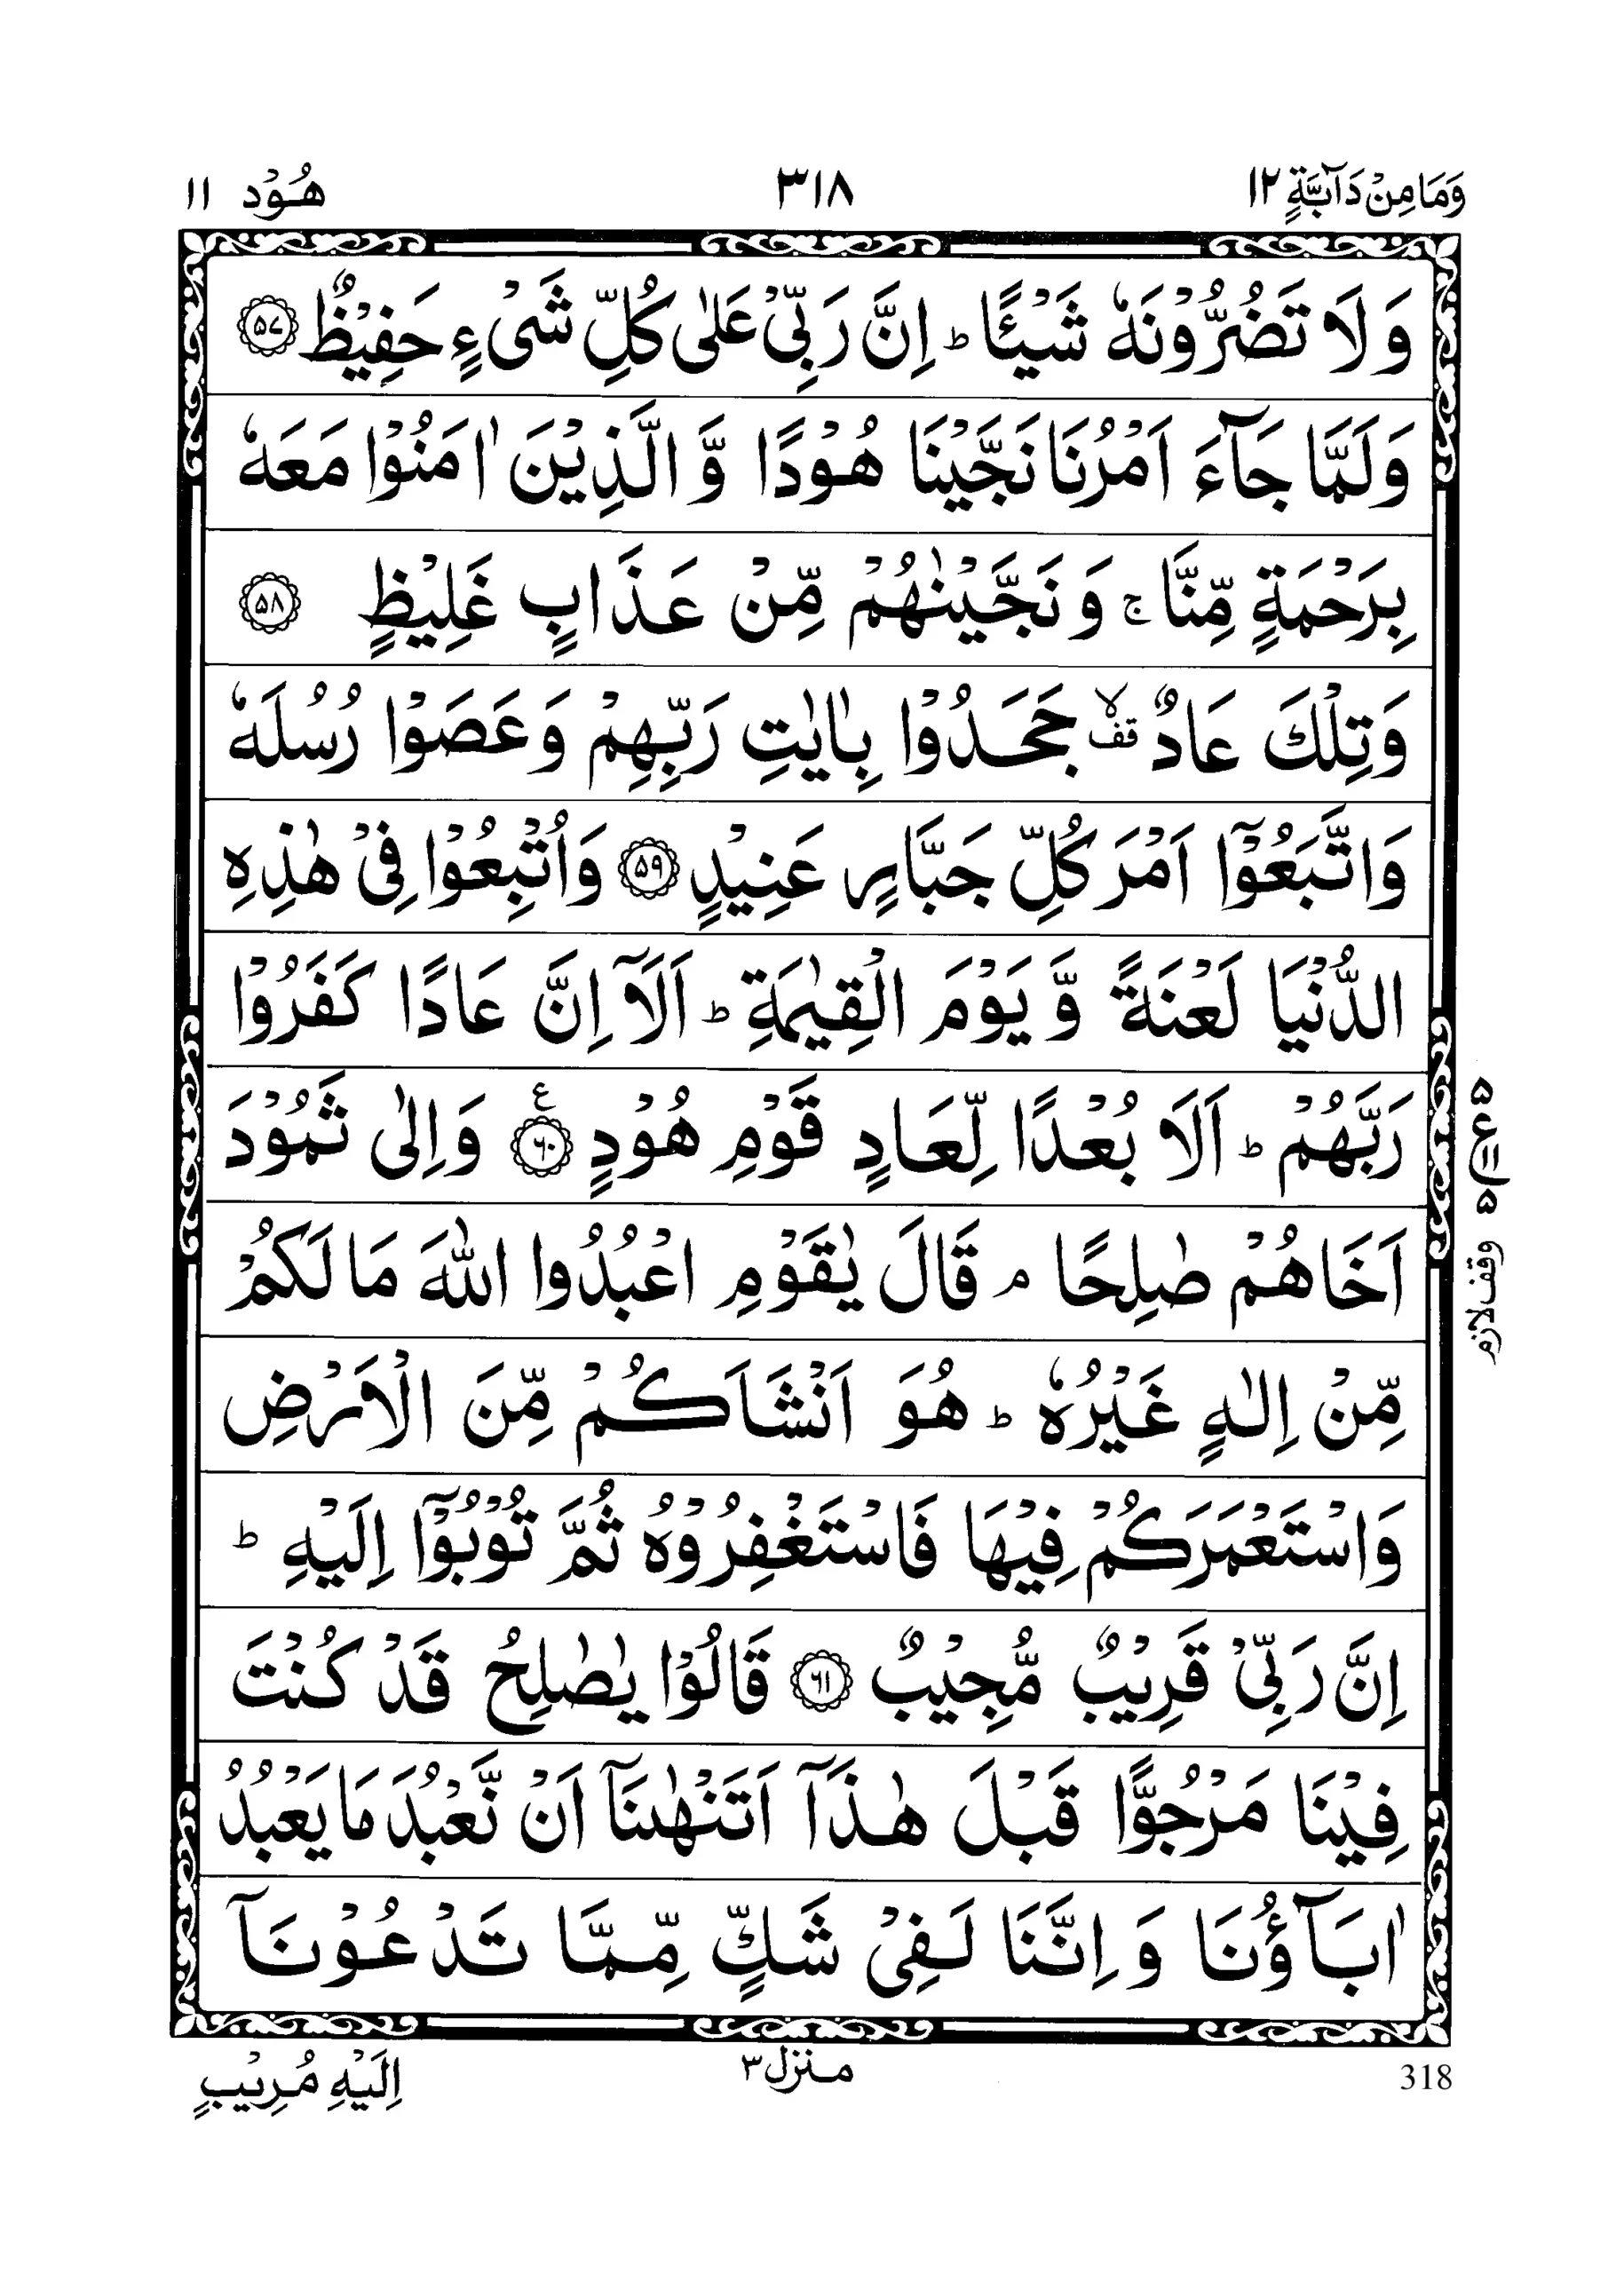 وَمَا مِنْ دَآبَّةٍ ١٢ ٣١٨ هُوْد ١١
وَلَا تَضُرُّوْنَهٗ شَيْـًٔا ؕ اِنَّ رَبِّيْ عَلٰى كُلِّ شَيْءٍ حَفِيْظٌ ﴿٥٧﴾
وَلَمَّا جَآءَ اَمْرُنَا نَجَّيْنَا هُوْدًا وَّ الَّذِيْنَ اٰمَنُوْا مَعَهٗ
بِرَحْمَةٍ مِّنَّا ۚ وَ نَجَّيْنٰهُمْ مِّنْ عَذَابٍ غَلِيْظٍ ﴿٥٨﴾
وَتِلْكَ عَادٌ ۙقف جَحَدُوْا بِاٰيٰتِ رَبِّهِمْ وَعَصَوْا رُسُلَهٗ
وَاتَّبَعُوْٓا اَمْرَ كُلِّ جَبَّارٍ عَنِيْدٍ ﴿٥٩﴾ وَاُتْبِعُوْا فِيْ هٰذِهِ
الدُّنْيَا لَعْنَةً وَّ يَوْمَ الْقِيٰمَةِ ؕ اَلَآ اِنَّ عَادًا كَفَرُوْا
رَبَّهُمْ ؕ اَلَا بُعْدًا لِّعَادٍ قَوْمِ هُوْدٍ ﴿٦٠﴾ ع وَاِلٰى ثَمُوْدَ
اَخَاهُمْ صٰلِحًا ۘ قَالَ يٰقَوْمِ اعْبُدُوا اللّٰهَ مَا لَكُمْ
مِّنْ اِلٰهٍ غَيْرُهٗ ؕ هُوَ اَنْشَاَكُمْ مِّنَ الْاَرْضِ
وَاسْتَعْمَرَكُمْ فِيْهَا فَاسْتَغْفِرُوْهُ ثُمَّ تُوْبُوْٓا اِلَيْهِ ؕ
اِنَّ رَبِّيْ قَرِيْبٌ مُّجِيْبٌ ﴿٦١﴾ قَالُوْا يٰصٰلِحُ قَدْ كُنْتَ
فِيْنَا مَرْجُوًّا قَبْلَ هٰذَآ اَتَنْهٰىنَآ اَنْ نَّعْبُدَ مَا يَعْبُدُ
اٰبَآؤُنَا وَ اِنَّنَا لَفِيْ شَكٍّ مِّمَّا تَدْعُوْنَآ
٥ ع ١١ ٥
وقف لازم
318 منزل ٣ اِلَيْهِ مُرِيْبٍ